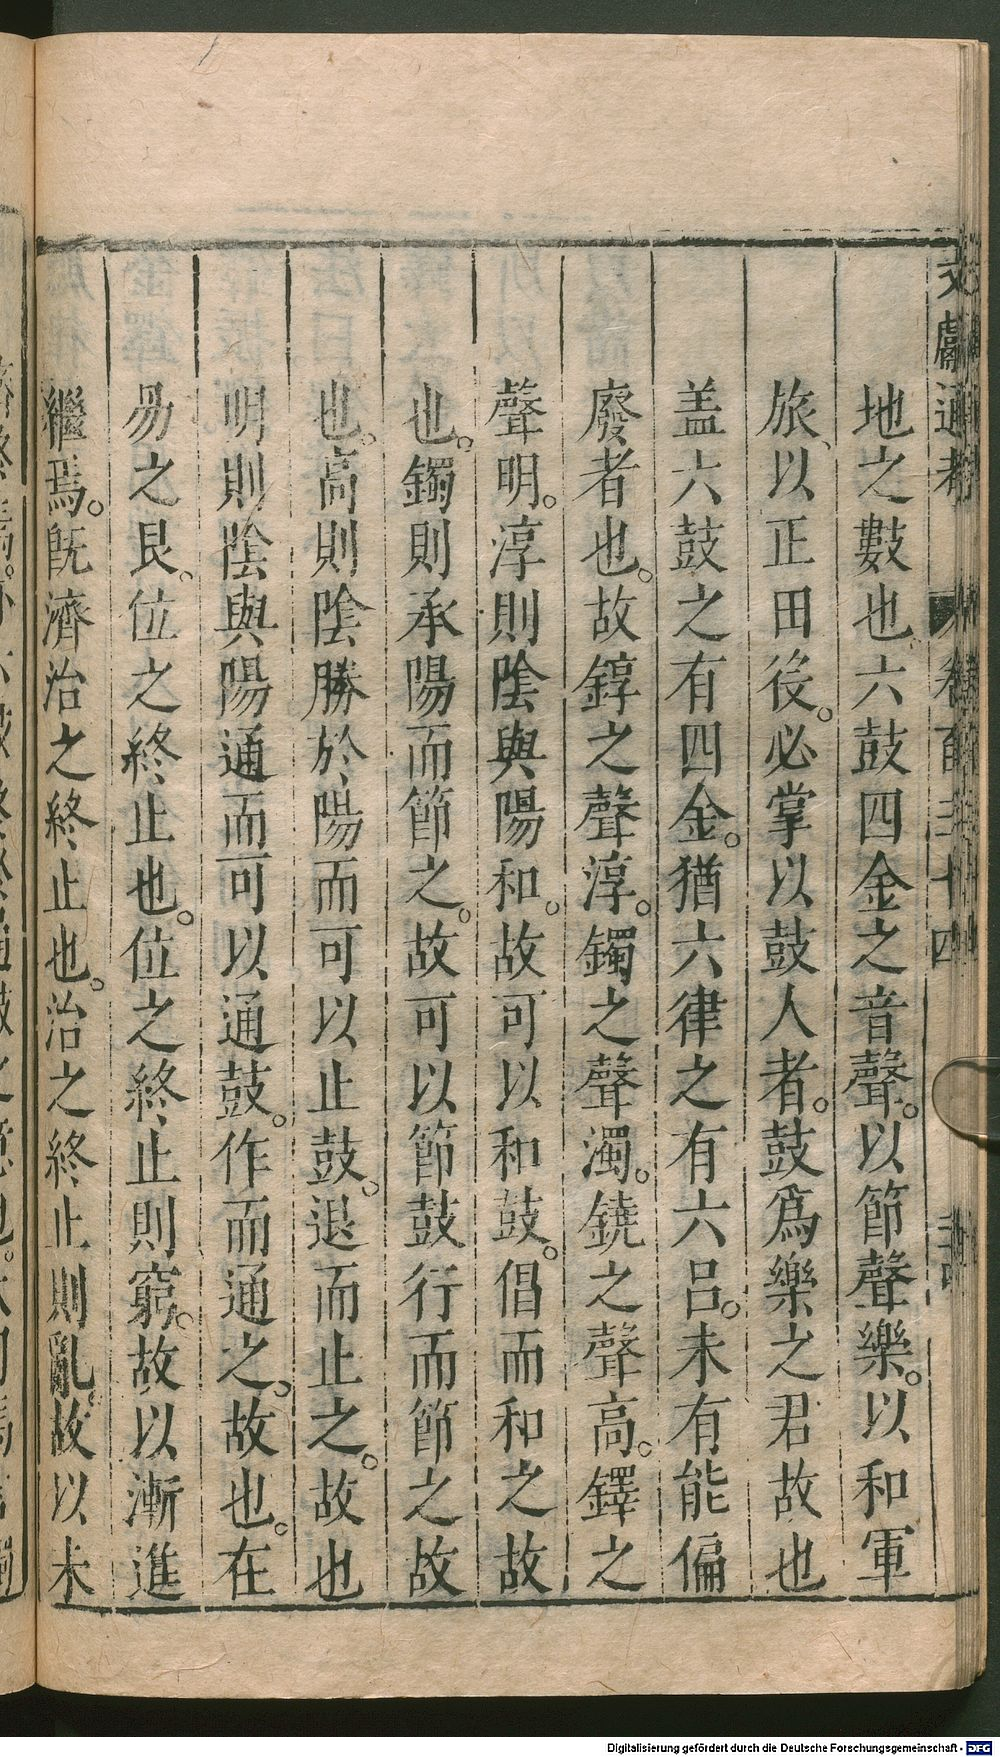 文獻通考 卷百三十四
地之數也六鼓四金之音聲。以節聲樂。以和軍
旅、以正田役。必掌以鼓人者。鼓爲樂之君故也
盖六鼓之有四金。猶六律之有六呂。未有能偏
廢者也。故錞之聲淳。鐲之聲濁。鐃之聲高。鐸之
聲明。淳則陰與陽和。故可以和鼓。倡而和之故
也。鐲則承陽而節之。故可以節鼓行而節之故
也。高則陰勝於陽而可以止鼓。退而止之。故也
明則陰與陽通而可以通鼓。作而通之。故也。在
易之艮。位之終止也。位之終止則窮。故以漸進
繼焉。旣濟治之終止也。治之終止則亂。故以未
Digitalisierung gefördert durch die Deutsche Forschungsgemeinschaft - DFG